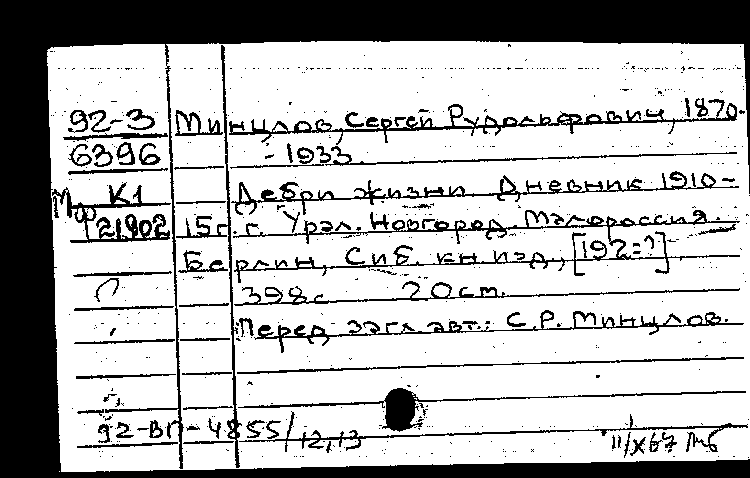 92-3 Минцлов, Сергей Рудольфович, 1870-
6396 -1933.
К1 Дебри жизни Дневник 1910-
Мф 21902 15г.г. Урал. Новгород. Малороссия.
Берлин, Сиб. кн изд., [192=?]
398с 20 см.
Перед загл. авт.: С.Р. Минцлов.
92-ВП-4855/12,13
11/X 67